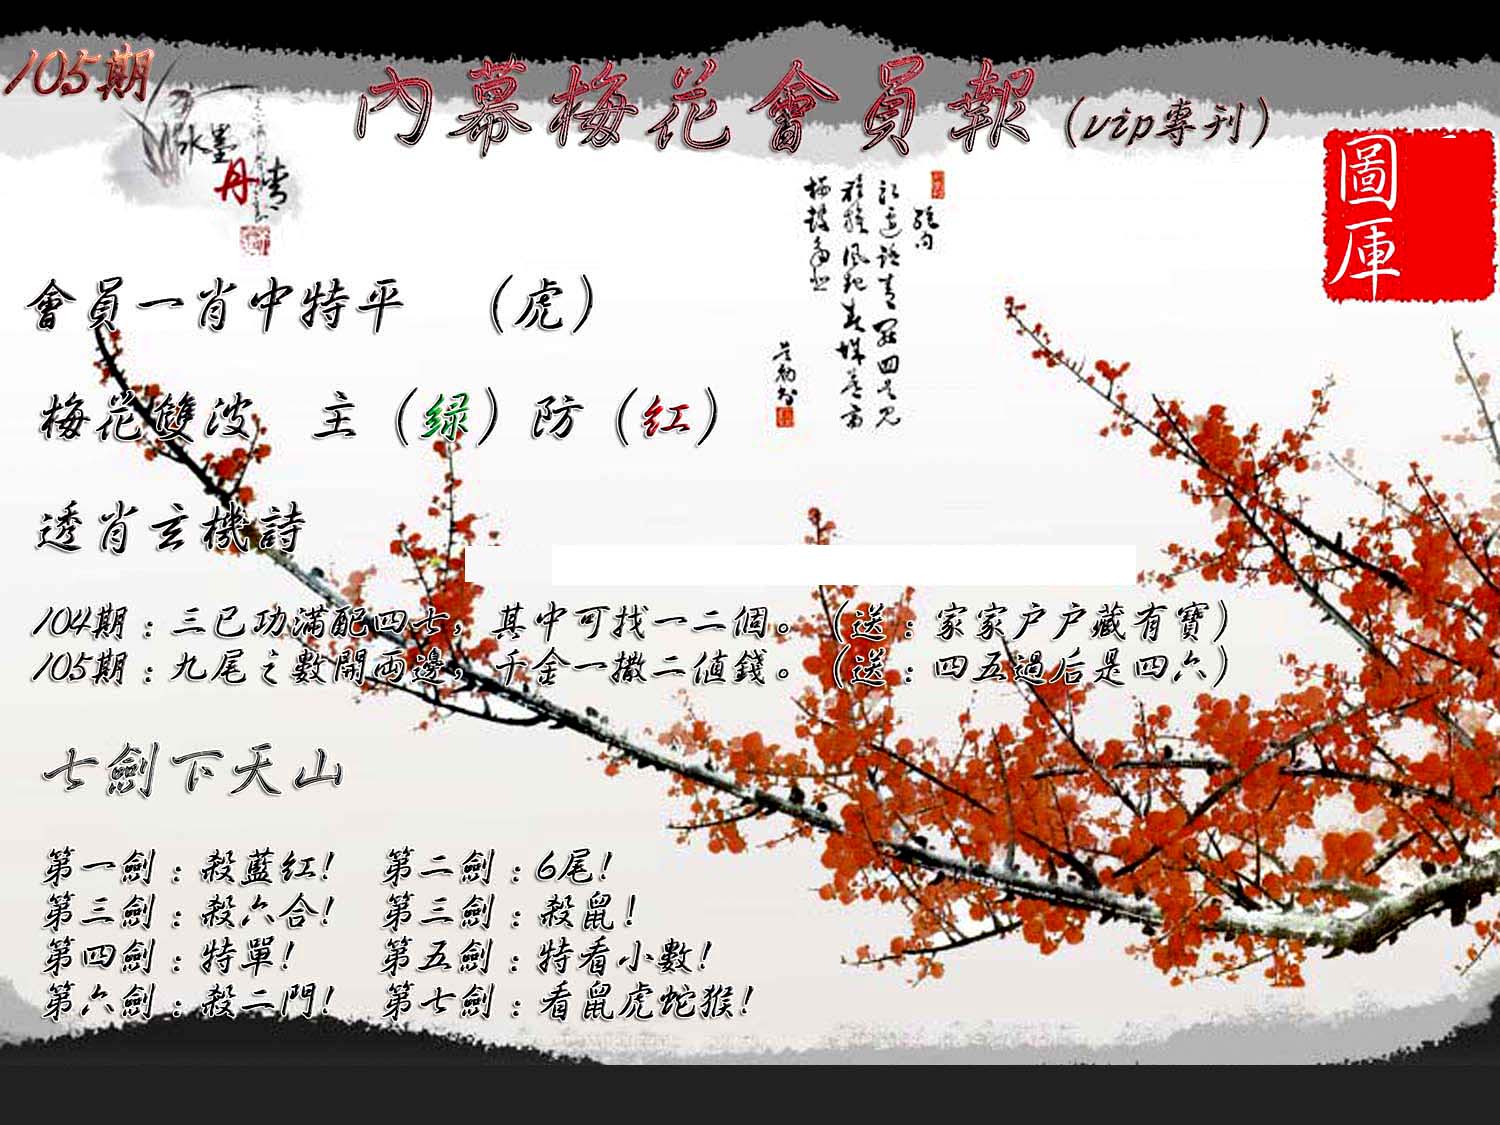 105期
內幕梅花會員報（vip專刊）
水墨
丹青
圖庫
會員一肖中特平　（虎）
梅花雙波　主（绿）防（红）
透肖玄機詩
104期：三已功滿配四七，其中可找一二個。（送：家家户户藏有寶）
105期：九尾之數開両邊，千金一撒二值錢。（送：四五過后是四六）
七劍下天山
第一劍：殺藍红！　第二劍：6尾！
第三劍：殺六合！　第三劍：殺鼠！
第四劍：特單！　第五劍：特看小數！
第六劍：殺二門！　第七劍：看鼠虎蛇猴！